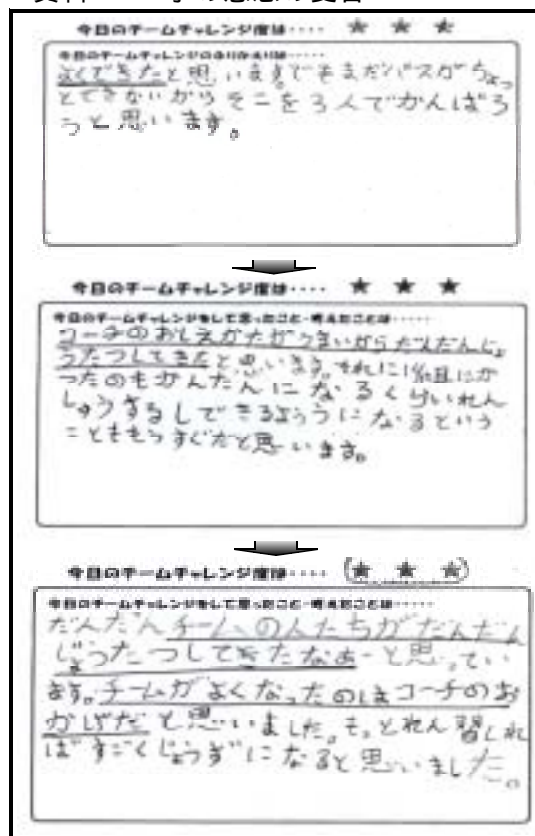 今日のチームチャレンジ度は‥‥ ★ ★ ★
今日のチームチャレンジのふりかえりは‥‥‥
よくできたと思います。でもまだパスがちょっ
とできないからそこを3人でがんばろ
うと思います。
今日のチームチャレンジ度は‥‥ ★ ★ ★
今日のチームチャレンジをして思ったこと・考えたことは‥‥‥
コーチのおしえかたがうまいからだんだんじょ
うたつしてきたと思います。それに1%組にか
ったのもかんたんになるくらいれん
しゅうするしできるようになるという
ことも
もうすぐだと思います。
今日のチームチャレンジ度は‥‥ (★ ★ ★)
今日のチームチャレンジをして思ったこと・考えたことは‥‥‥
だんだんチームの人たちがだんだん
じょうたつしてきたなあーと思ってい
ます。チームがよくなったのはコーチのお
かげだと思いました。もっとれん習しれ
ばすごくじょうずになると思いました。